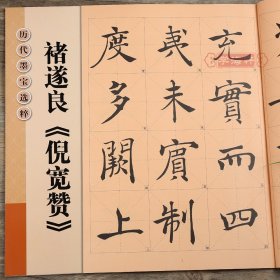 历代墨宝选粹
褚遂良《倪宽赞》
充實而四
夷未賓制
度多闕上